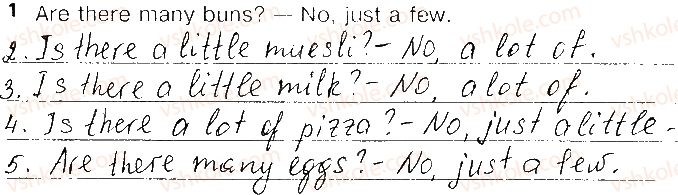 1 Are there many buns? — No, just a few.
2. Is there a little muesli? - No, a lot of.
3. Is there a little milk? - No, a lot of.
4. Is there a lot of pizza? - No, just a little.
5. Are there many eggs? - No, just a few.